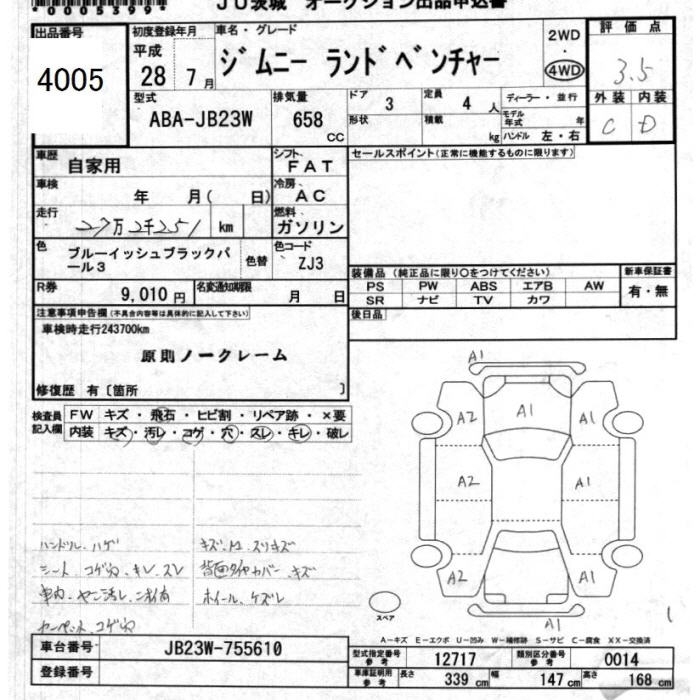 *0005399*
JU茨城 オークション出品申込書
出品番号 4005
初度登録年月 平成 28 7月
車名・グレード ジムニー ランドベンチャー
2WD ・ 4WD
評価点 3.5
外装 内装
C D
型式 ABA-JB23W
排気量 658 CC
ドア 3 定員 4 人
形状 積載 kg
ディーラー・並行
モデル年式 年
ハンドル 左・右
車歴 自家用
シフト FAT
セールスポイント(正常に機能するものに限ります)
車検 年 月( 日)
冷房 AC
走行 27万2千251 km
燃料 ガソリン
色 ブルーイッシュブラックパール3 色替
色コード ZJ3
装備品(純正品に限り○をつけてください) 新車保証書
PS PW ABS エアB AW 有・無
SR ナビ TV カワ
R券 9,010円 名変通知期限 月 日
後日品
注意事項申告欄(不具合内容等は具体的に記入して下さい)
車検時走行243700km
原則ノークレーム
修復歴 有〔箇所 〕
検査員記入欄
FW キズ・飛石・ヒビ割・リペア跡・×要
内装 キズ・汚レ・コゲ・穴・スレ・キレ・破レ
A1
A2 A1 A1
A2 A1
A2 A1
A1
スペア
ハンドル、ハゲ
シート、コゲ穴、キレ、スレ
車内、ヤニ汚レ、ニオイ有
カーペット コゲ穴
キズ、凹、スリキズ
背面タイヤカバー、キズ
ホイール、ケズレ
A-キズ E-エクボ U-凹み W-補修跡 S-サビ C-腐食 XX-交換済
車台番号 JB23W-755610
型式指定番号 参考 12717 類別区分番号 参考 0014
登録番号
車庫証明用 参考 長さ 339 cm 幅 147 cm 高さ 168 cm